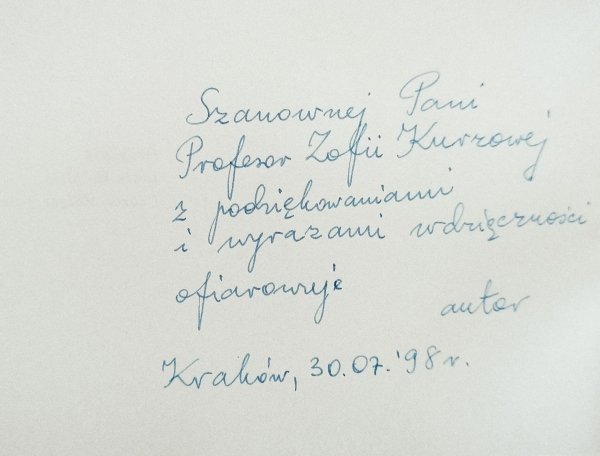 Szanownej Pani
Profesor Zofii Kurzowej
z podziękowaniami
i wyrazami wdzięczności
ofiarowuje
autor
Kraków, 30.07.'98 r.